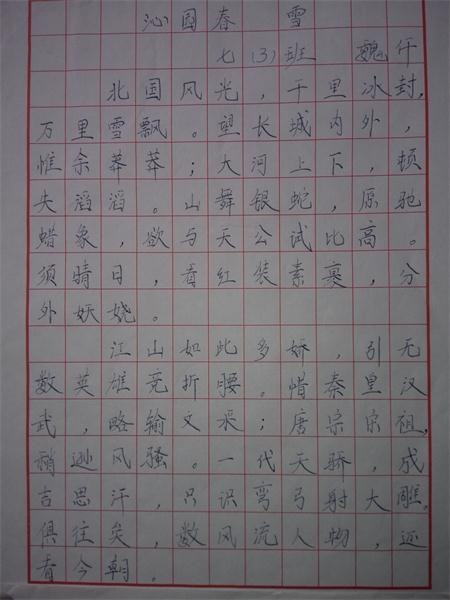 沁园春 雪
七(3)班 魏仟
北国风光，千里冰封，
万里雪飘。望长城内外，
惟余莽莽；大河上下，顿
失滔滔。山舞银蛇，原驰
蜡象，欲与天公试比高。
须晴日，看红装素裹，分
外妖娆。
江山如此多娇，引无
数英雄竞折腰。惜秦皇汉
武，略输文采；唐宗宋祖，
稍逊风骚。一代天骄，成
吉思汗，只识弯弓射大雕。
俱往矣，数风流人物，还
看今朝。